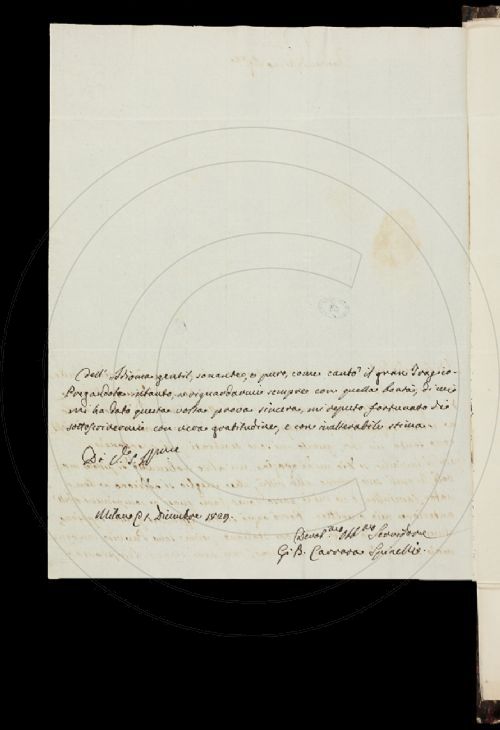 dell' Idioma gentil, sonante, e puro, come cantò il gran Tragico.
Pregandola intanto a riguardarmi sempre con quella bontà, di cui
mi ha dato questa volta prova sincera, mi reputo fortunato di
sottoscrivermi con vera gratitudine, e con inalterabile stima.
Di V. S.
Milano Dicembre 1829.
Servidore
G. B. Carrara Spinelli